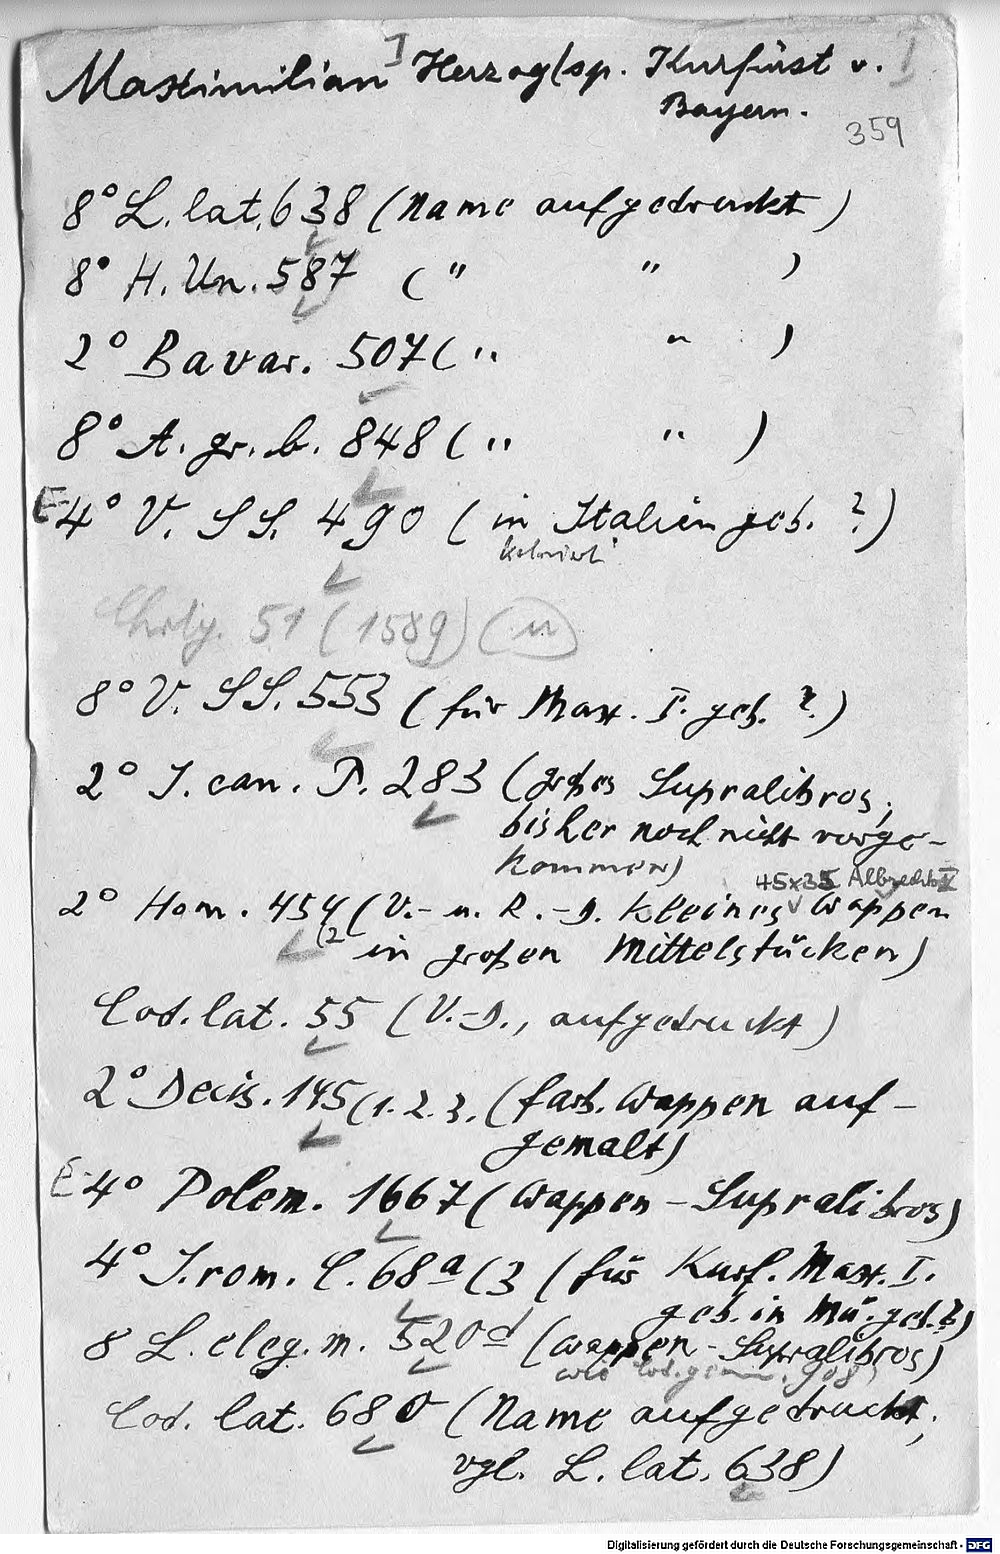 Maximilian I Herzog/sp. Kurfürst v. I
Bayern.
359
8° L. lat. 638 (Name aufgedruckt)
8° H. Un. 587 ( " " )
2° Bavar. 507 ( " " )
8° A. gr. b. 848 ( " " )
E 4° V. SS. 490 ( in Italien geb. ?)
51 (1589)
8° V. SS. 553 (für Max. I. geb. ?)
2° J. can. P. 283 (großes Supralibros,
bisher noch nicht vorge-
kommen)
45x35 Albrechts V
2° Hom. 454 (2 (V.- u. R.-D. kleines Wappen
in großen Mittelstücken)
Cod. lat. 55 (V.-D., aufgedruckt)
2° Decis. 145 (1. 2. 3. (farb. Wappen auf-
gemalt)
E 4° Polem. 1667 (Wappen-Supralibros)
4° J. rom. C. 68a (3 (für Kurf. Max. I.
geb. in Mü. geb. ?)
8 L. eleg. m. 520d (Wappen-Supralibros)
wie Cod. germ. 908)
Cod. lat. 680 (Name aufgedruckt,
vgl. L. lat. 638)
Digitalisierung gefördert durch die Deutsche Forschungsgemeinschaft - DFG